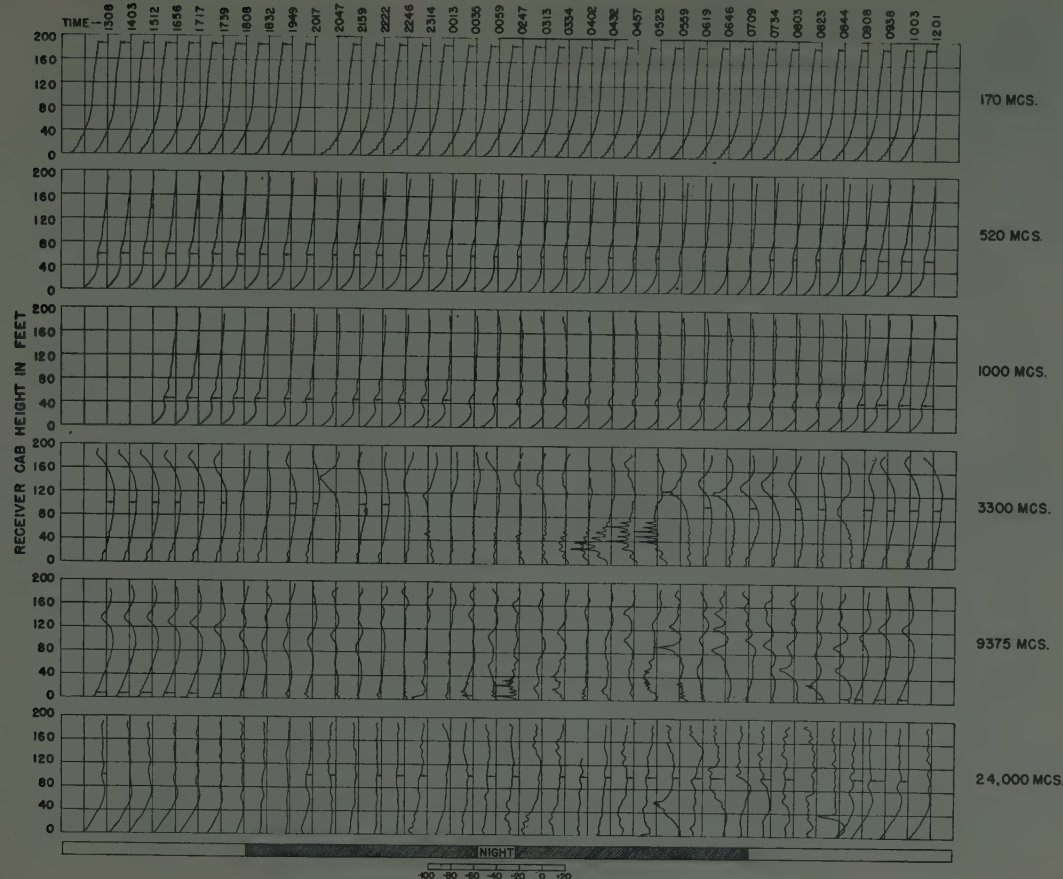 TIME→ 1308 1403 1512 1656 1717 1739 1808 1832 1949 2017 2047 2159 2222 2246 2314 0013 0035 0059 0247 0313 0334 0402 0432 0457 0523 0559 0619 0646 0709 0734 0803 0823 0844 0908 0938 1003 1201
RECEIVER CAB HEIGHT IN FEET
200
160
120
80
40
0
170 MCS.
200
160
120
80
40
0
520 MCS.
200
160
120
80
40
0
1000 MCS.
200
160
120
80
40
0
3300 MCS.
200
160
120
80
40
0
9375 MCS.
200
160
120
80
40
0
24,000 MCS.
NIGHT
-100 -80 -60 -40 -20 0 +20